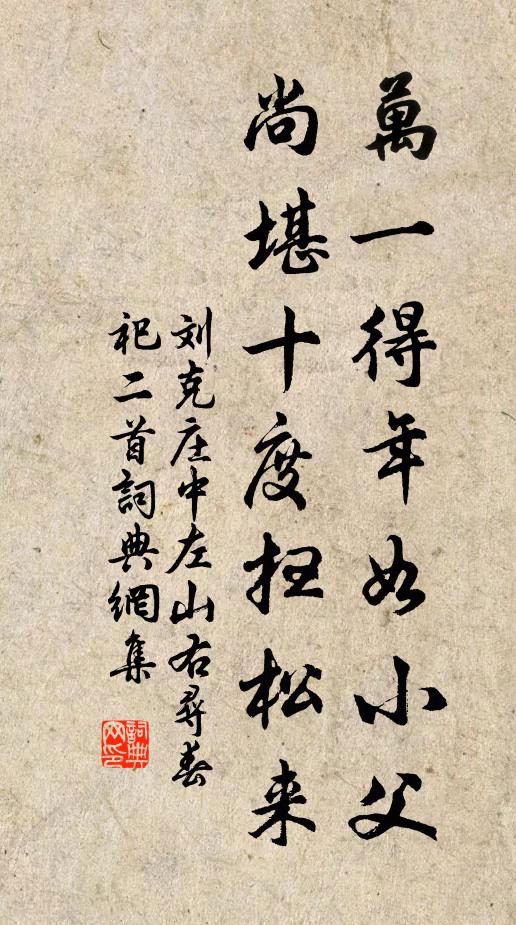 萬一得年如小父
尚堪十度扫松来
刘克庄中左山右尋春
祀二首詞典網集
詞典
网印